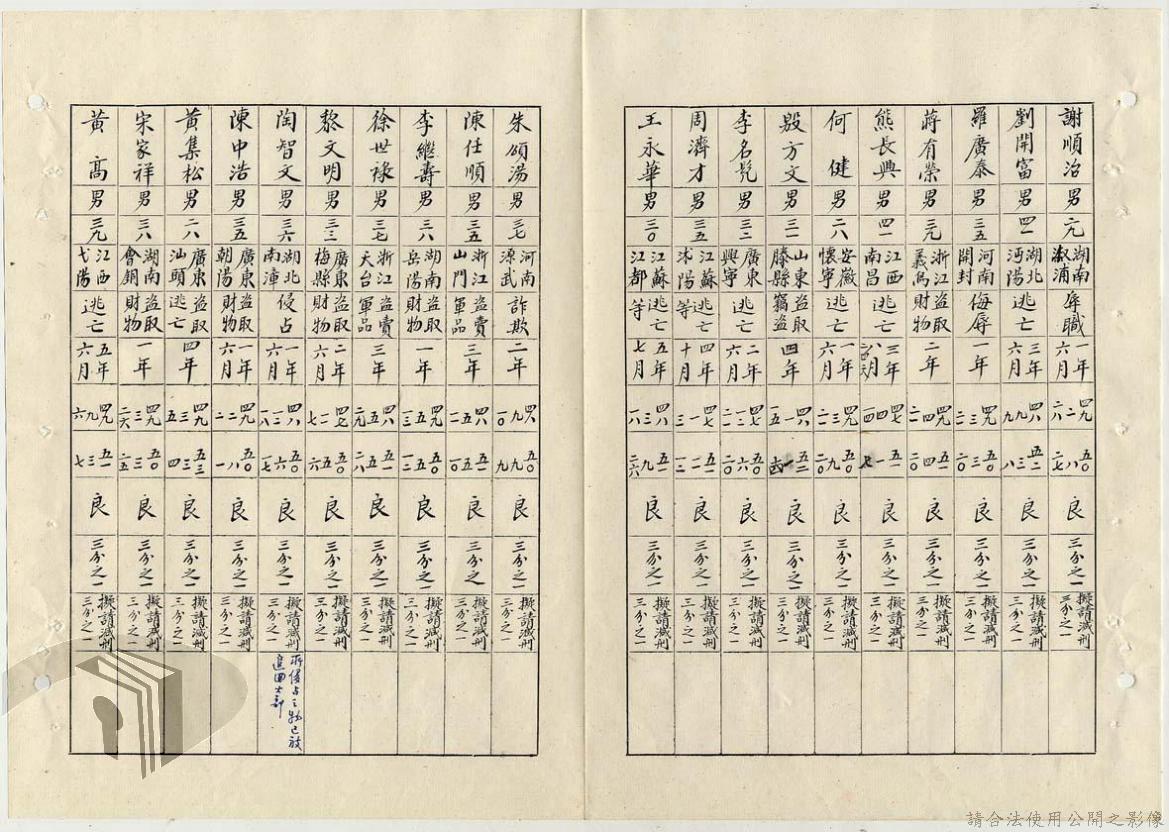 謝順治 男 二九 湖南漵浦 辱職 一年六月 四九 二 五〇 八 二七 良 三分之一 擬請減刑三分之一
劉開富 男 四一 湖北沔陽 逃亡 三年六月 四八 九 九 五二 三 八 良 三分之一 擬請減刑三分之一
羅廣泰 男 三五 河南開封 侮辱 一年 四九 三 二一 五〇 三 二〇 良 三分之一 擬請減刑三分之一
蔣有榮 男 三九 浙江義烏 盜取財物 二年 四九 四 二一 五一 四 二〇 良 三分之一 擬請減刑三分之一
熊長興 男 四一 江西南昌 逃亡 三年八月 四七 四 一四 五一 一 良 三分之一 擬請減刑三分之一
何健 男 二八 安徽懷寧 逃亡 一年六月 四九 三 二一 五〇 九 二〇 良 三分之一 擬請減刑三分之一
殷方文 男 三一 山東滕縣 盜取竊盜 四年 四八 一 一五 五二 一 一四 良 三分之一 擬請減刑三分之一
李名 男 三二 廣東興寧 逃亡 二年六月 四七 一二 二一 五〇 六 二〇 良 三分之一 擬請減刑三分之一
周濟才 男 三五 江蘇沭陽 逃亡等 四年十月 四七 三 五二 一 二 良 三分之一 擬請減刑三分之一
王永華 男 三〇 江蘇江都 逃亡等 五年七月 三 一八 五一 九 二六 良 三分之一 擬請減刑三分之一
朱頌湯 男 三七 河南源武 詐欺 二年 四八 九 一〇 五〇 九 九 良 三分之一 擬請減刑三分之一
陳仕順 男 三五 浙江山門 盜賣軍品 三年 四八 五 一一 五一 五 一〇 良 三分之一 擬請減刑三分之一
李繼壽 男 三八 湖南岳陽 盜取財物 一年 四九 五 一三 五〇 五 一二 良 三分之一 擬請減刑三分之一
徐世祿 男 三七 浙江天台 盜賣軍品 三年 四八 五 二九 五一 五 二八 良 三分之一 擬請減刑三分之一
黎文明 男 三三 廣東梅縣 盜取財物 二年六月 四七 一一 七 五〇 五 六 良 三分之一 擬請減刑三分之一
陶智文 男 三六 湖北南漳 侵占 一年六月 四八 一二 一八 五〇 六 一七 良 三分之一 擬請減刑三分之一 所侵占之物已被追回大部
陳中浩 男 三五 廣東朝陽 盜取財物 一年六月 四九 二 二 五〇 八 一 良 三分之一 擬請減刑三分之一
黃集松 男 二八 廣東汕頭 盜取逃亡 四年 四九 三 五 五三 三 四 良 三分之一 擬請減刑三分之一
宋家祥 男 三八 湖南會銅 盜取財物 一年 四九 三 二六 五〇 三 二五 良 三分之一 擬請減刑三分之一
黃高 男 三九 江西弋陽 逃亡 五年六月 九 六 五一 三 七 良 三分之一 擬請減刑三分之一
請合法使用公開之影像